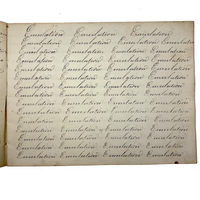 Emulation Emulation Emulation
Emulation Emulation Emulation Emulation
Emulation Emulation Emulation Emulation
Emulation Emulation Emulation Emulation
Emulation Emulation Emulation Emulation
Emulation Emulation Emulation Emulation
Emulation Emulation Emulation Emulation
Emulation Emulation Emulation Emulation
Emulation Emulation Emulation Emulation
Emulation Emulation Emulation Emulation
Emulation Emulation Emulation Emulation
Emulation Emulation Emulation Emulation
Emulation Emulation Emulation Emulation
Emulation Emulation Emulation Emulation